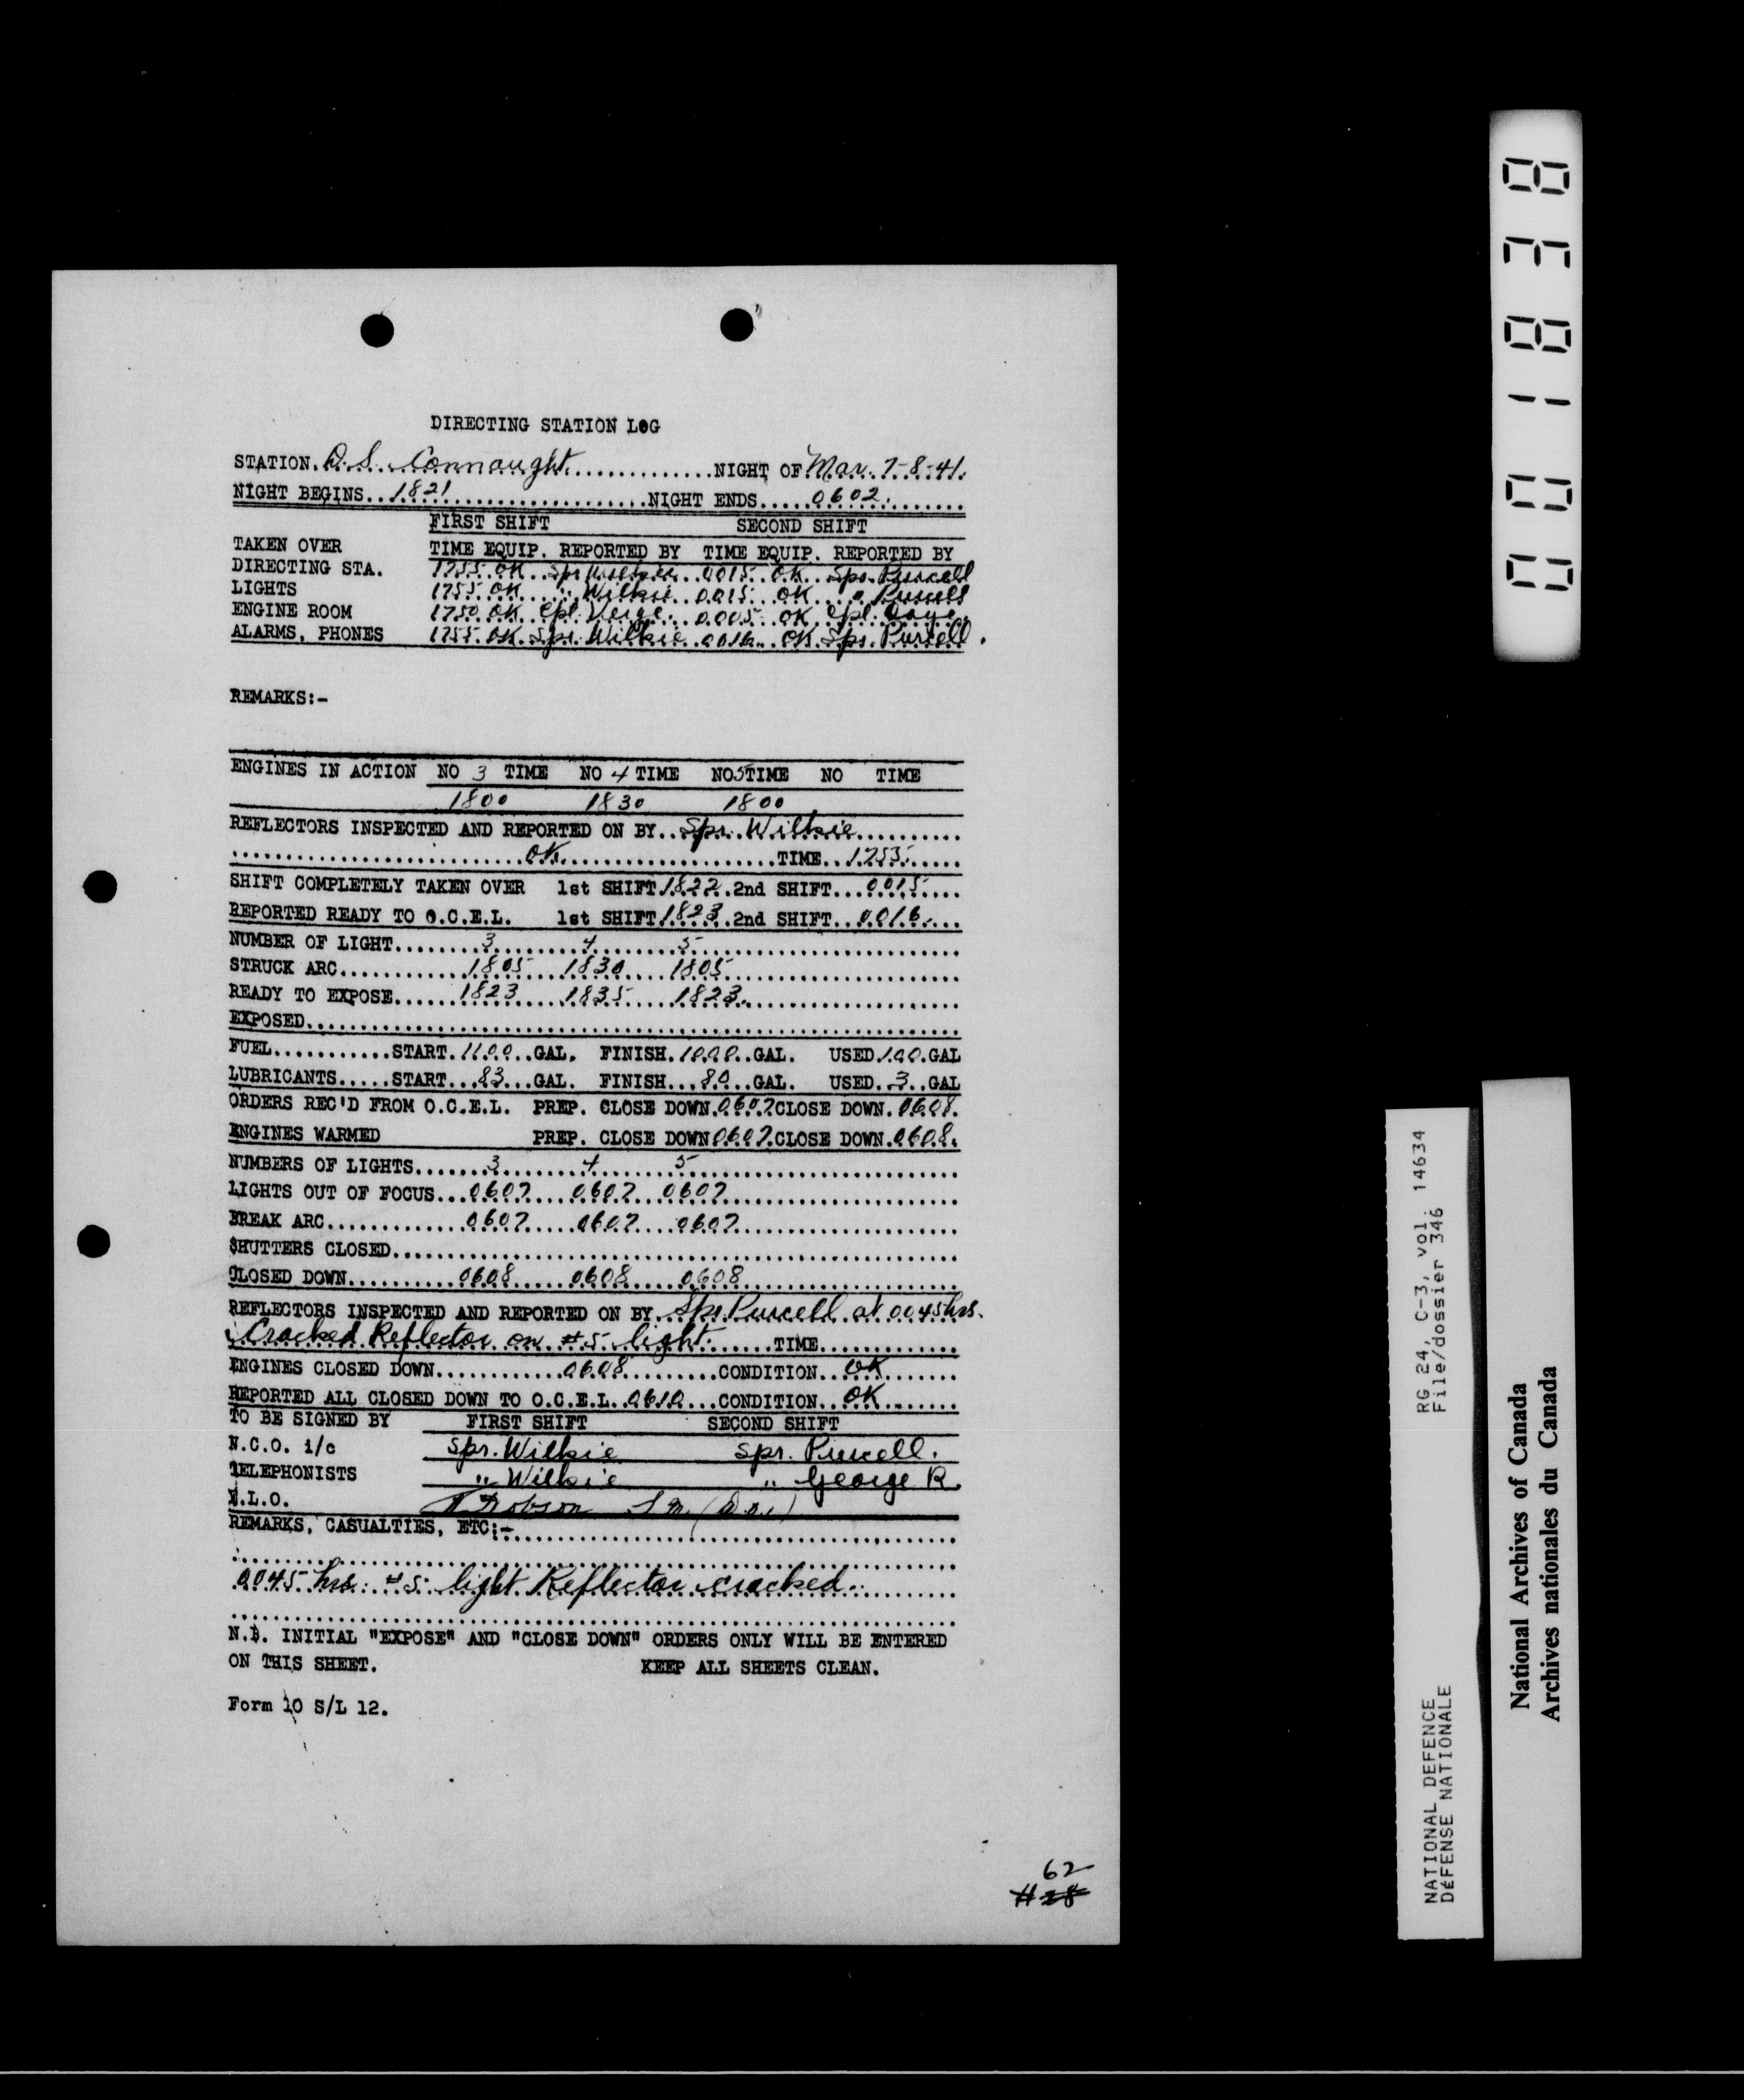 DIRECTING STATION LOG
STATION. D.S. Connaught..............NIGHT OF Mar. 7-8-41.
NIGHT BEGINS..1821......................NIGHT ENDS.....0602.
FIRST SHIFT SECOND SHIFT
TAKEN OVER TIME EQUIP. REPORTED BY TIME EQUIP. REPORTED BY
DIRECTING STA. 1755 OK Spr Wilkie 0015 OK Spr. Purcell
LIGHTS 1755 OK " Wilkie 0015 OK " Purcell
ENGINE ROOM 1750 OK Cpl. Verge 0005 OK Cpl.
ALARMS, PHONES 1755 OK Spr. Wilkie 0016 OK Spr. Purcell.
REMARKS:-
ENGINES IN ACTION NO 3 TIME NO 4 TIME NO 5 TIME NO TIME
1800 1830 1800
REFLECTORS INSPECTED AND REPORTED ON BY..Spr. Wilkie..........
OK....................TIME..1753......
SHIFT COMPLETELY TAKEN OVER 1st SHIFT 1822..2nd SHIFT...0015....
REPORTED READY TO O.C.E.L. 1st SHIFT 1823..2nd SHIFT..0016....
NUMBER OF LIGHT........3.........4.........5
STRUCK ARC............1805 1830 1805
READY TO EXPOSE......1823 1835 1823
EXPOSED
FUEL...........START.1100..GAL. FINISH.1000..GAL. USED 100.GAL
LUBRICANTS.....START...83...GAL. FINISH...80...GAL. USED..3..GAL
ORDERS REC'D FROM O.C.E.L. PREP. CLOSE DOWN.0607 CLOSE DOWN.0608.
ENGINES WARMED PREP. CLOSE DOWN 0607.CLOSE DOWN.0608.
NUMBERS OF LIGHTS.......3........4........5
LIGHTS OUT OF FOCUS...0607....0607...0607
BREAK ARC.............0607.....0607....0607
SHUTTERS CLOSED
CLOSED DOWN..........0608.....0608.....0608
REFLECTORS INSPECTED AND REPORTED ON BY.Spr. Purcell at 0045 hrs.
Cracked Reflector on #5 light.......TIME
ENGINES CLOSED DOWN............0608.........CONDITION...OK
REPORTED ALL CLOSED DOWN TO O.C.E.L..0610...CONDITION..OK
TO BE SIGNED BY FIRST SHIFT SECOND SHIFT
N.C.O. i/c Spr. Wilkie Spr. Purcell.
TELEPHONISTS " Wilkie " George R.
E.L.O.
REMARKS, CASUALTIES, ETC:-
0045 hrs. #5 light Reflector cracked.
N.B. INITIAL "EXPOSE" AND "CLOSE DOWN" ORDERS ONLY WILL BE ENTERED
ON THIS SHEET. KEEP ALL SHEETS CLEAN.
Form 10 S/L 12.
62
#28
001838
RG 24, C-3, vol. 14634
File/dossier 346
NATIONAL DEFENCE
DÉFENSE NATIONALE
National Archives of Canada
Archives nationales du Canada